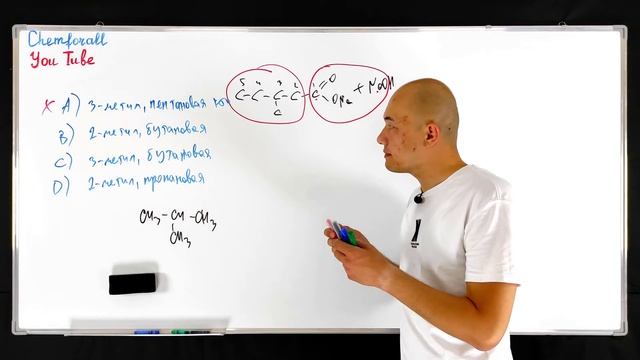 Chemforall
You Tube
x A) 3-метил, пентановая
B) 2-метил, бутановая
C) 3-метил, бутановая
D) 2-метил, пропановая
5 4 3 2 1
C-C-C-C-C O
C ONa + NaOH
CH3-CH-CH3
CH3